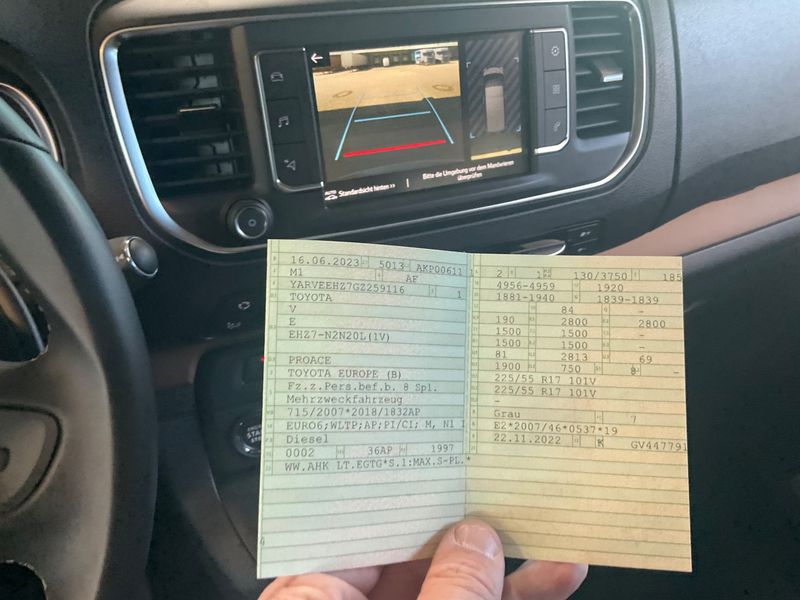 AUTO
Standardsicht hinten >>
Bitte die Umgebung vor dem Manövrieren
überprüfen
START
16.06.2023 5013 AKP00611 1
M1 AF
YARVEEHZ7GZ259116 1
TOYOTA
V
E
EHZ7-N2N20L(1V)
PROACE
TOYOTA EUROPE (B)
Fz.z.Pers.bef.b. 8 Spl.
Mehrzweckfahrzeug
715/2007*2018/1832AP
EURO6;WLTP;AP;PI/CI; M, N1 I
Diesel
0002 36AP 1997
WW.AHK LT.EGTG*S.1:MAX.S-PL.*
4
2 1 130/3750 185
4956-4959 1920
1881-1940 1839-1839
84 -
190 2800 2800
1500 1500 -
1500 1500 -
81 2813 69
1900 750 -
225/55 R17 101V
225/55 R17 101V
-
Grau 7
E2*2007/46*0537*19
22.11.2022 K GV447791